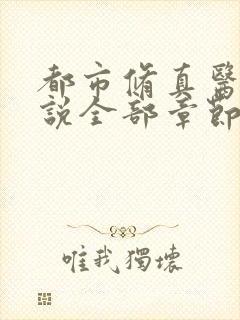 都市脩真醫
說全部章節
唯我獨壞